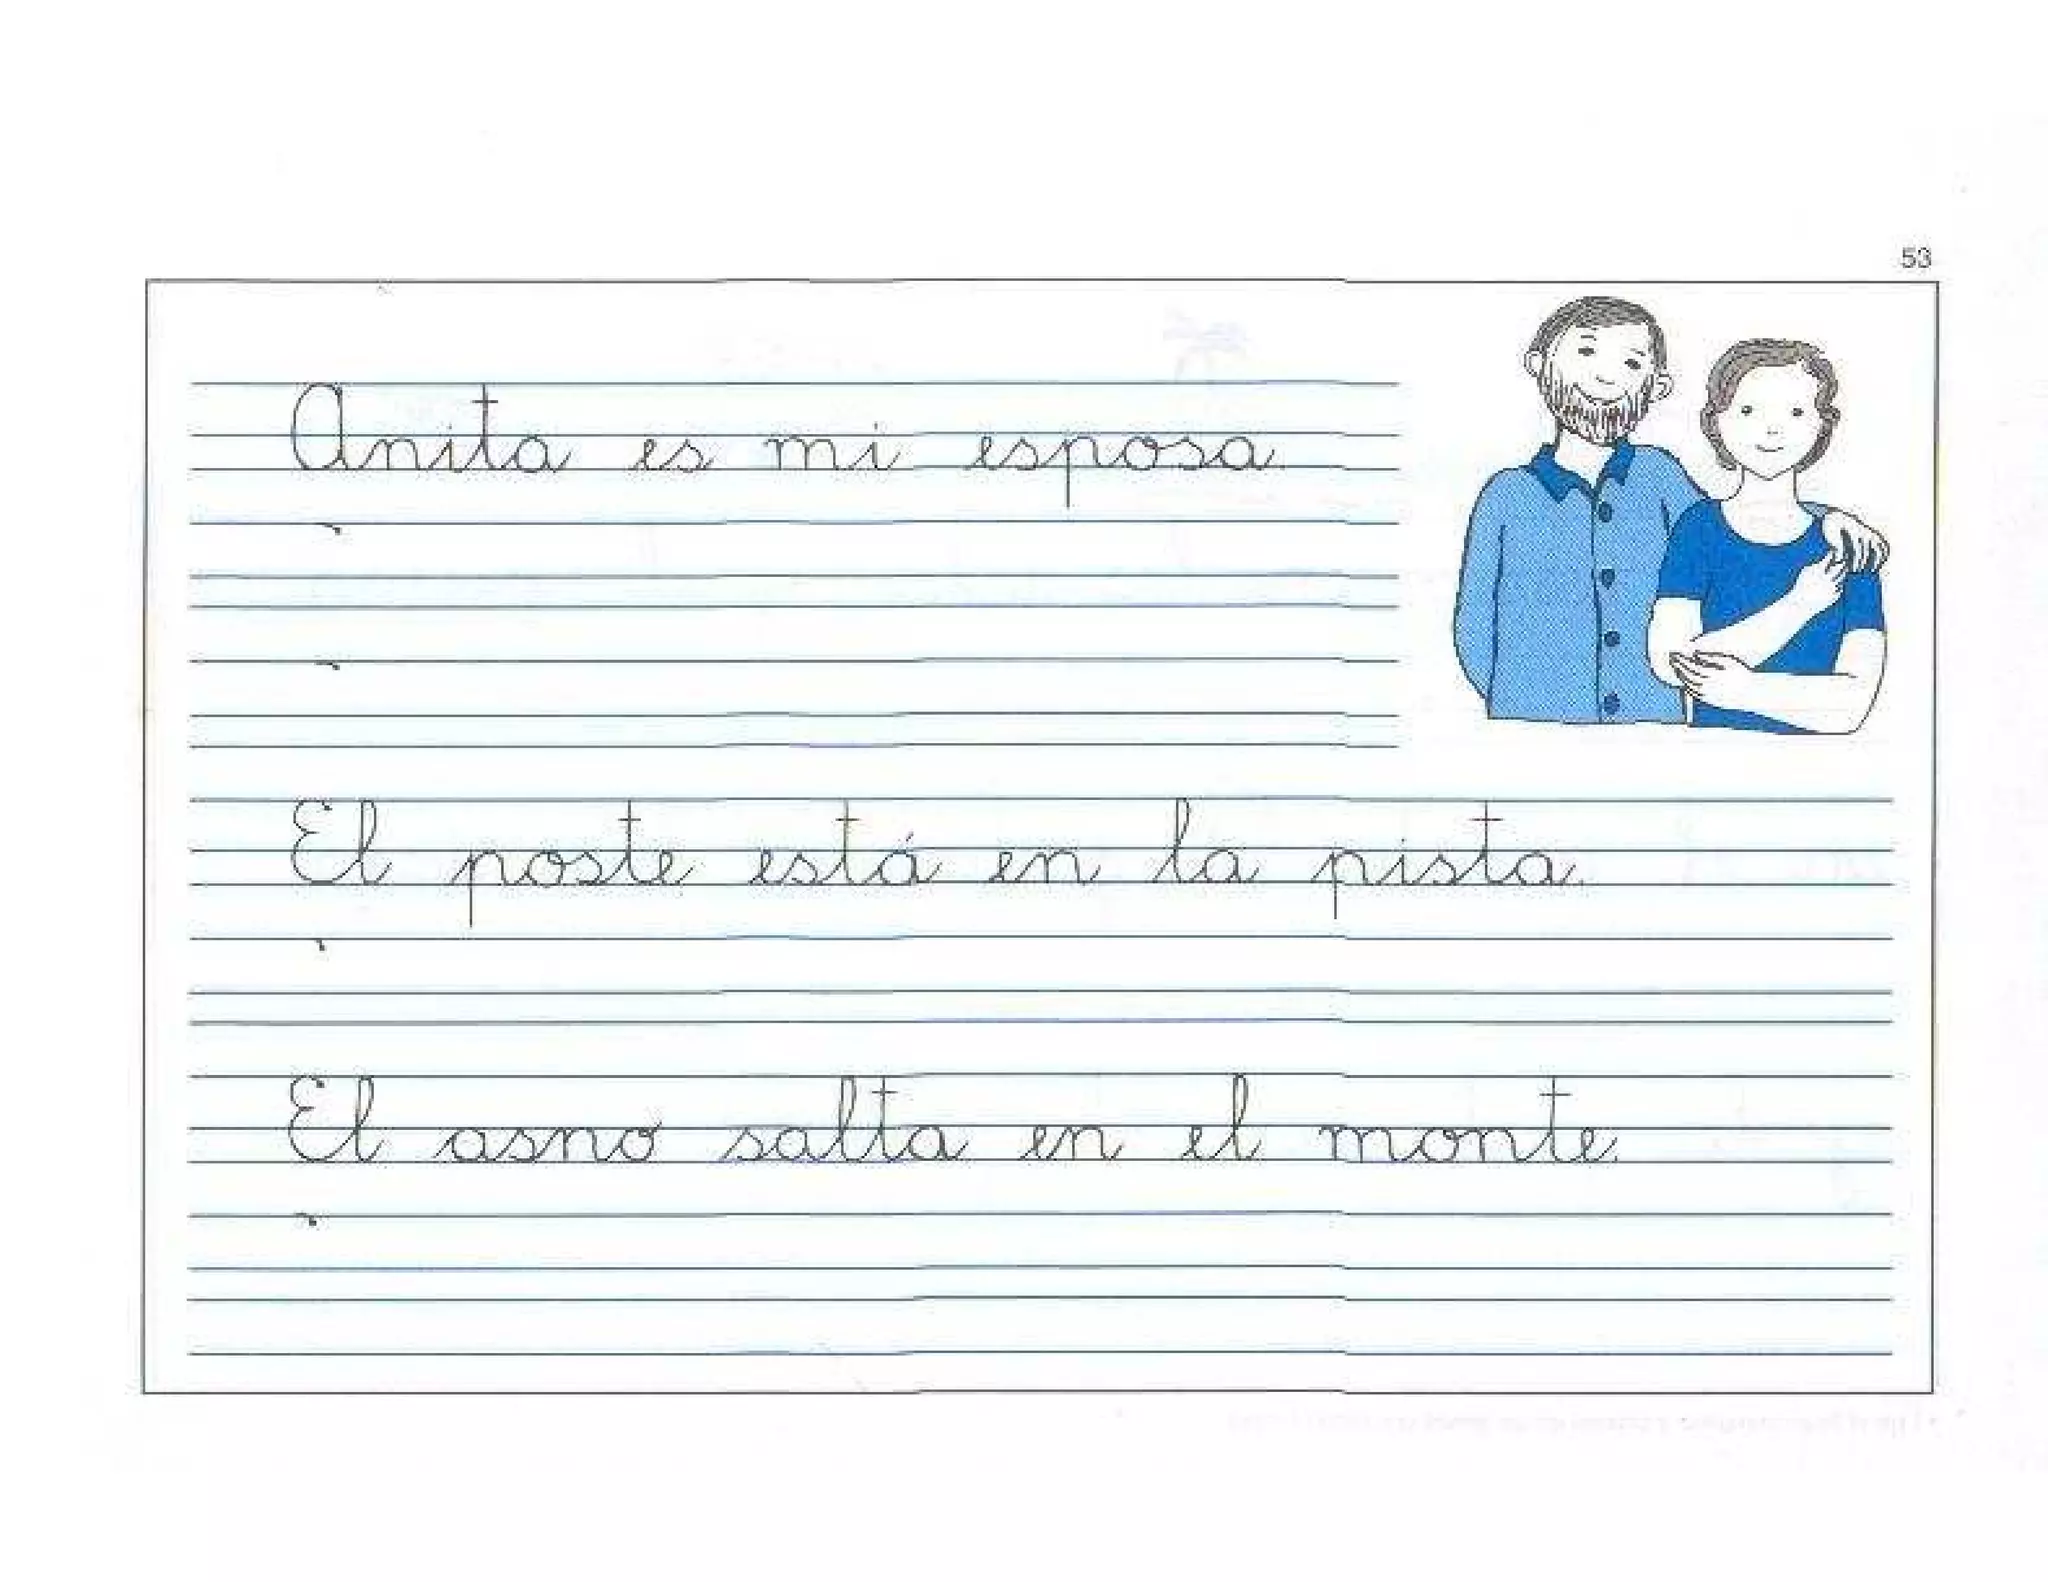 53
Anita es mi esposa.
El poste está en la pista.
El asno salta en el monte.